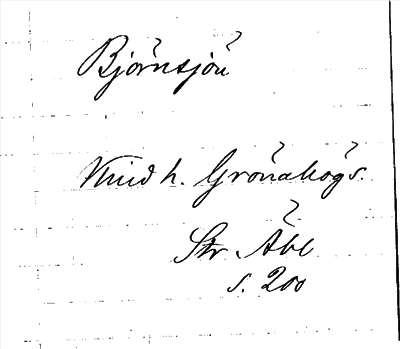 Björnsjön
Knidh. Grönahögs.
Str. Åbl
s. 200